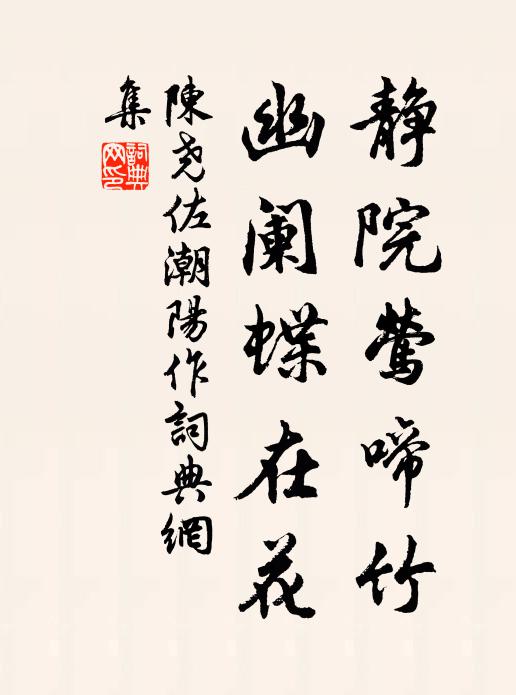 静院鶯啼竹
幽阑蝶在花
陳尧佐潮陽作詞典網
集
詞典網印